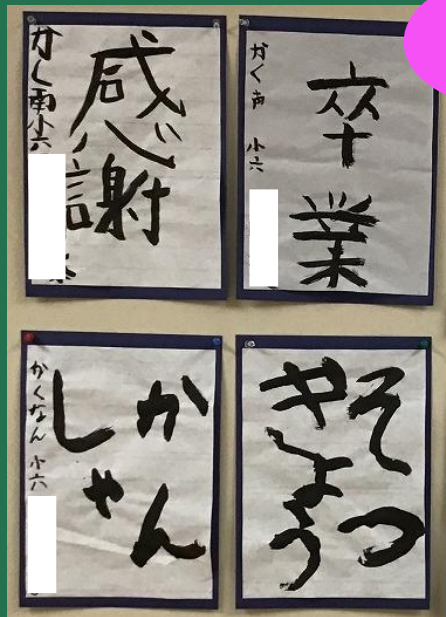 感謝
かく南小六
卒業
がく南 小六
かん
しゃ
かくなん 小六
そつ
ぎょう